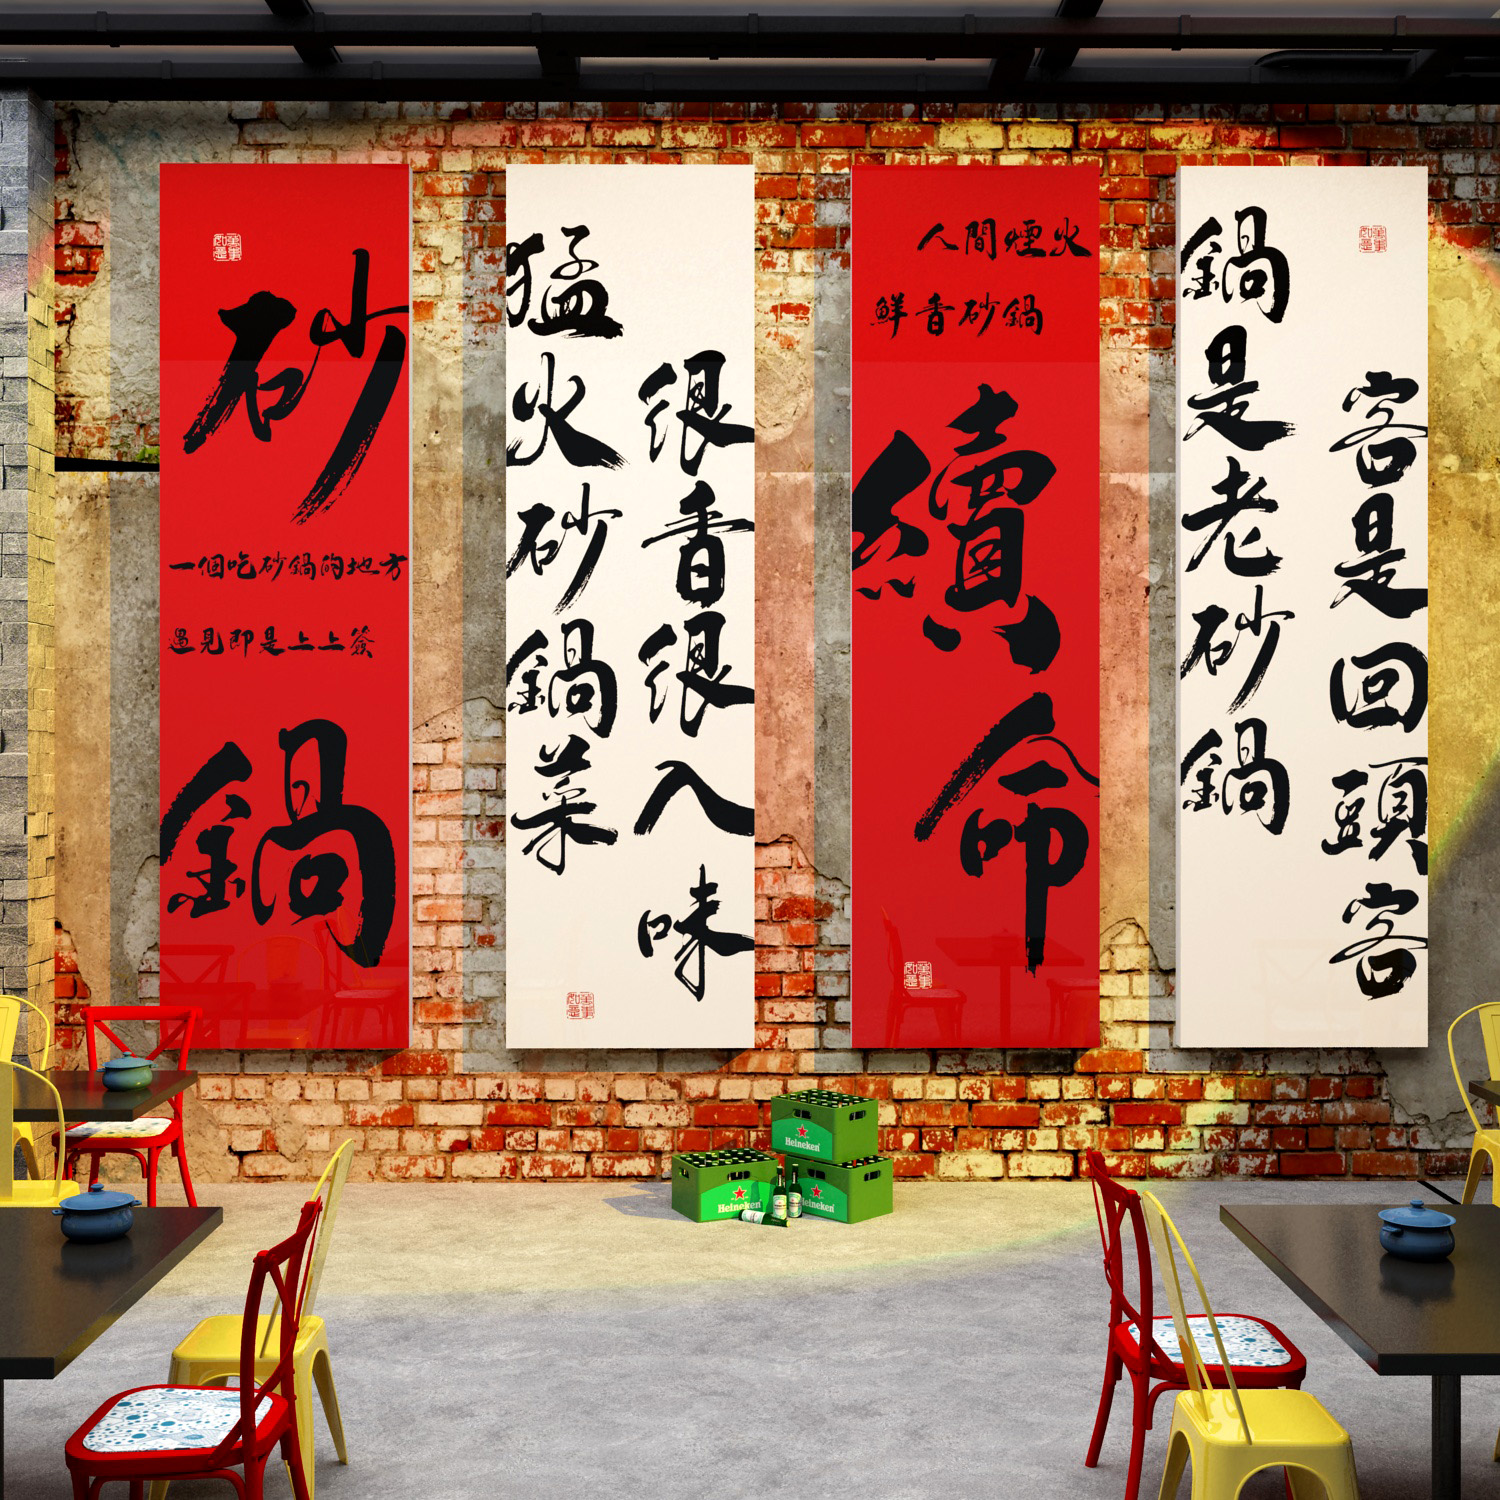 萬事如意
砂
一個吃砂鍋的地方
遇見即是上上簽
鍋
猛火砂鍋菜
很香很入味
萬事如意
人間煙火
鮮香砂鍋
續命
萬事如意
鍋是老砂鍋
客是回頭客
萬事如意
Heineken
Heineken
Heineken